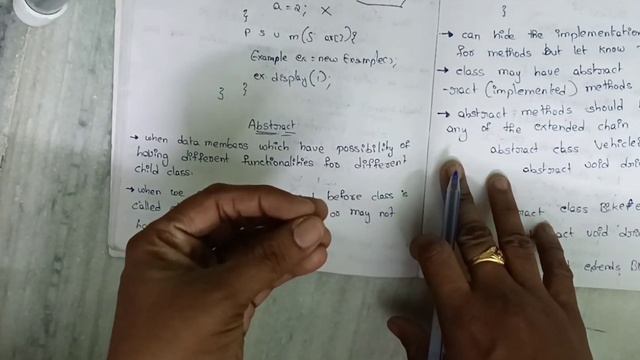 }
a = 2; X
P S V m(S ar[]){
Example ex = new Example();
ex.display(1);
} }
Abstract
→ when data members which have possibility of
having different functionalities for different
child class.
→ when we before class is
called or may not
}
→ can hide the implementation
for methods but let know
→ class may have abstract
-ract (implemented) methods
→ abstract methods should
any of the extended chain
abstract class Vehicle
abstract void dri
ract class Bike
act void dri
t extends